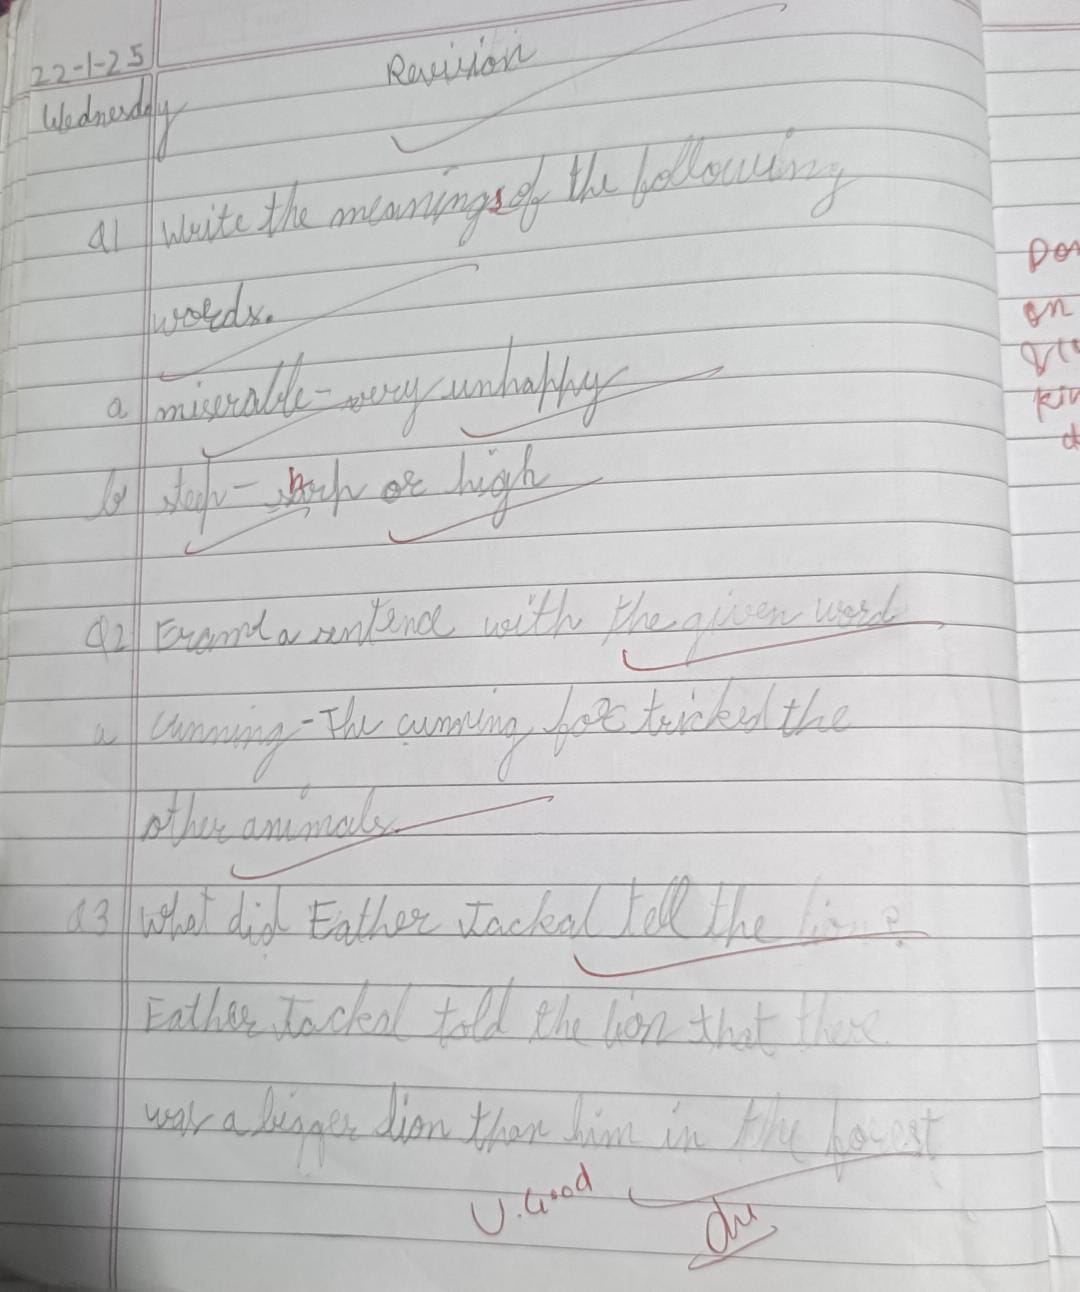 22-1-25
Wednesday
Revision
Q1 Write the meanings of the following
words.
a miserable - very unhappy
b steep - sharp or high
Q2 Frame a sentence with the given word
a Cunning - The cunning fox tricked the
other animals.
Q3 What did Father Jackal tell the lion?
Father Jackal told the lion that there
was a bigger lion than him in the forest
V. Good
on